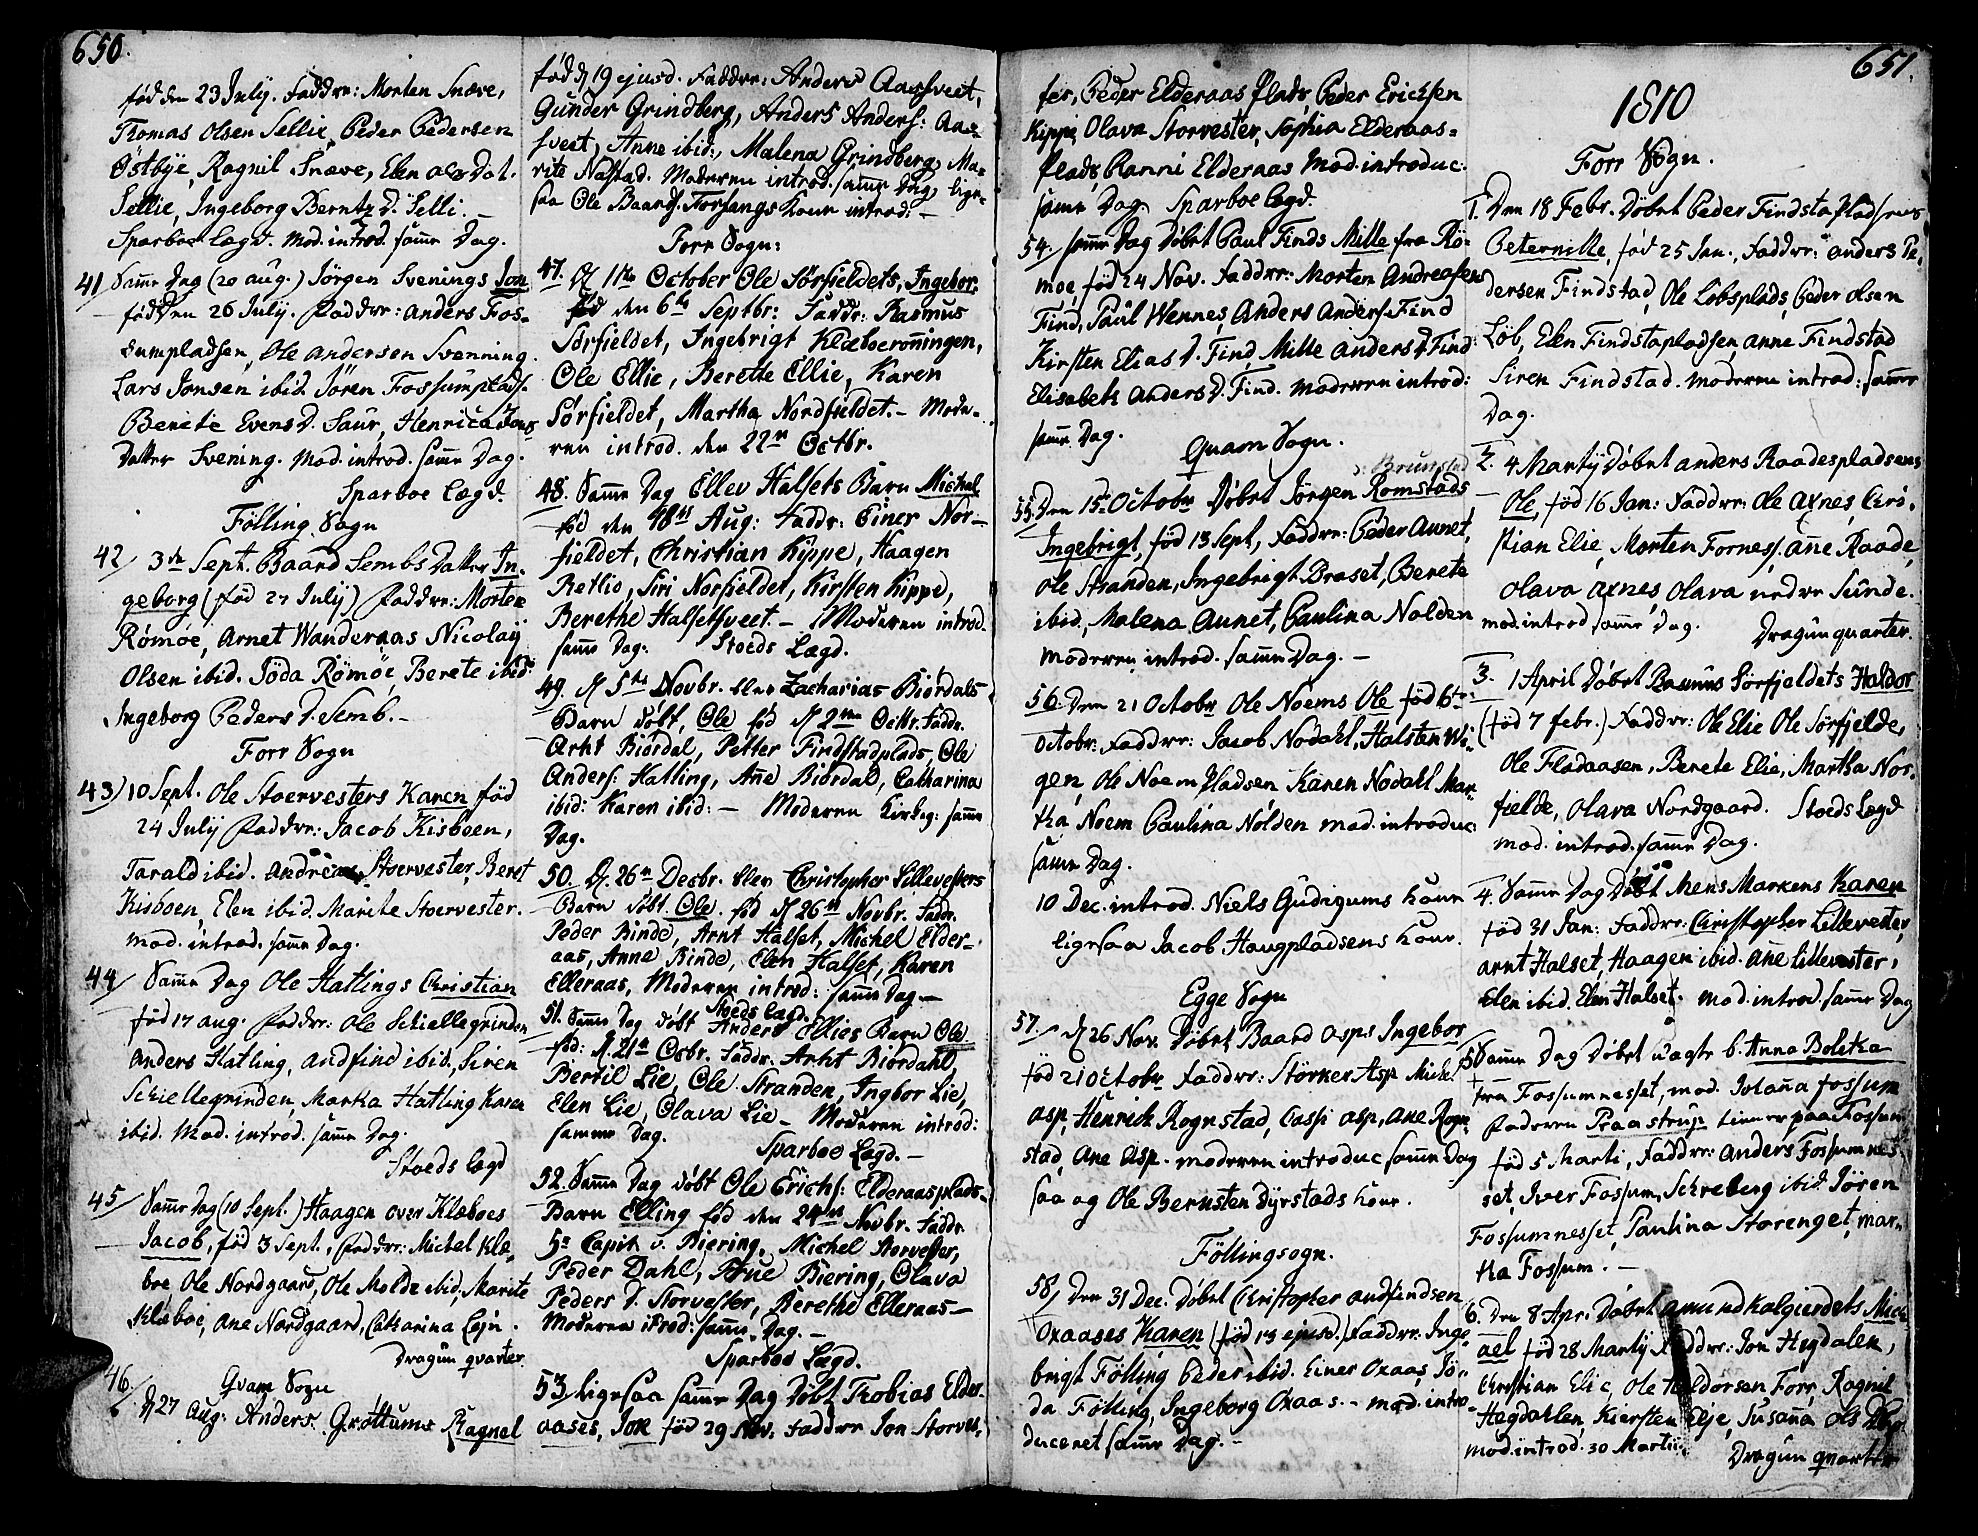 650.
fød den 23 July. Faddrr: Morten Snæve,
Thomas Olsen Sellie, Peder Pedersen
Østbye, Ragnil Snæve, Elen Dat.
Sellie, Ingeborg Berntz D. Selli. –
Sparboe Lægd. Mod. introd. samme Dag.
41 Samme Dag (20 aug.) Jörgen Svenings Jon
født den 26 July. Faddrr: Anders Fos-
sumpladsen, Ole Andersen Svenning.
Lars Jonsen ibid. Jören Fossumplads.
Berete Evens D. Saur, Henrica Jons
Datter Svening. Mod. introd. samme Dag.
Sparboe Lægd.
Følling Sogn
42/ 3de Sept. Baard Sembs Datter In-
geborg (fød 27 July) Faddrr: Morten
Römöe, Arnet Wanderaas Nicolay
Olsen ibid. Jöda Römöe, Berete ibid.
Ingeborg Peders D. Semb. –
Forr Sogn
43/ 10 Sept. Ole Stoervesters Karen fød
24 July Faddrr: Jacob Kisboen,
Tarald ibid. Andreas Stoervester, Beret
Kisboen, Elen ibid. Marite Stoervester.
mod. introd. samme Dag.
44/ Samme Dag Ole Hatlings Christian
fød 17 aug. Faddrr: Ole Schiellegrinden
Anders Hatling, Andfind ibid, Siren
Schiellegrinden, Marta Hatling Karen
ibid. Mod. introd. samme Dag.
Stoeds Lægd
45/ Samme Dag (10 Sept.) Haagen over Klæboes
Jacob, fød 3 Sept., Faddrr: Michel Klæ-
boe, Ole Nordgaard, Ole Molde ibid, Marite
Klæboe, Ane Nordgaard, Catharina Lejn.
Dragun qvarter
Qvam Sogn
46/ d 27 Aug: Anders Grøttums Ragnel
fød d 19 ejusd. Faddrr: Anders Aassveet,
Gunder Grindberg, Anders Anders: Aa-
sveet, Anne ibid:, Malena Grindberg, Ma-
rite Nastad. Moderen introd. samme Dag, lige-
saa Ole Baards. Forsangs Kone introd: –
Forr Sogn:
47. d 1ste October Ole Sörfieldets, Ingebor.
fød den 6te Septbr: Faddr: Rasmus
Sörfieldet, Ingebrigt Klæboerönningen,
Ole Ellie, Berethe Ellie, Karen
Sörfieldet, Martha Nordfieldet. – Mode-
ren introd. den 22de Octbr.
48. Samme Dag Ellev Halsets Barn Michel
fød den 18de Aug: Faddr: Einer Nor-
fieldet, Christian Kippe, Haagen
Retlio, Siri Norfieldet, Kirsten Kippe,
Berethe Halsetsveet. – Moderen introd.
samme Dag. Stoeds Lægd.
49. d 5te Novbr. blev Zacharias Biördals
Barn döbt, Ole fød d 2den Octbr. Faddr.
Arnt Biördal, Petter Findstadplads, Ole
Anders: Hatling, Ane Biördal, Catharina
ibid: Karen ibid: – Moderen kirkeg: samme
Dag.
50. d. 26de Decbr. blev Christopher Lillevesters
Barn döbt. Ole. fød d 26de Novbr. Faddr.
Peder Binde, Arnt Halset, Michel Elder-
aas, Anne Binde, Elen Halset, Karen
Elleraas, Moderen introd: samme Dag –
Stoeds Lægd.
51. Samme Dag döbt Anders Ellies Barn Ole
fød: d. 21de Octbr. Faddr. Arnt Biördahl,
Bertil Lie, Ole Stranden, Ingbor Lie,
Elen Lie, Olava Lie – Moderen introd:
samme Dag.
Sparboe Lægd. –
52. Samme Dag döbt Ole Erichs: Elderaasplads-
Barn Elling fød den 24de Novbr. Faddr.
Sr Capit v. Biering, Michel Storvester,
Peder Dahl, Frue Biering, Olava
Peders D. Storvester, Berethe Elleraas –
Moderen itrod: samme Dag. –
Sparboe Lægd.
53 ligesaa samme Dag Döbt Tobias Elder-
aases, Jon fød 29 Nov. Faddrr Jon Storves-
651.
ter, Peder Elderaas Plads, Peder Erichsen
Kippe, Olava Storvester, Sophia Elderaas-
plads, Ranni Elderaas Mod. introduc.
samme Dag. Sparboe Lægd.
54. samme Dag Döbt Paul Finds Mille fra Rö-
moe, fød 24 Nov. Faddrr: Morten Andreasen
Find, Paul Wennes, Anders Anders. Find
Kirsten Elias D. Find, Mille Anders D Find
Elisabeth Anders D. Find. Moderen introd:
samme Dag.
Quam Sogn.
Brunstad
55. Den 15de October Döbt Jörgen Romstads
Ingebrigt, fød 13 Sept, Faddrr: Peder Aunet,
Ole Stranden, Ingebrigt Braset, Berete
ibid, Malena Aunet, Paulina Nolden
moderen introd. samme Dag. –
56. Den 21 October Ole Noems Ole fød 6te
Octobr: Faddrr: Jacob Nodahl, Halsten Wi-
gen, Ole Noem Pladsen Karen Nodahl Mar-
tha Noem Paulina Nolden mod. introduc:
samme Dag.
10 Dec. introd. Niels Gudigums Kone
ligesaa Jacob Haugpladsens Kone.
Egge Sogn
57. d 26 Nov. Döbt Baard Asps Ingebor
fød 21 October Faddrr: Störker Asp Michel
Asp, Henrich Rognstad, Casp: Asp, Ane Rogn-
stad, Ane Asp. moderen introduc samme Dag
saa og Ole Bernsten Dyrstads Kone.
Föllingsogn.
58/ Den 31 Dec. Döbt Christopher Andfindsen
Oxaases Karen (fød 13 ejusd.) Faddrr. Inge-
brigt Fölling Peder ibid. Einer Oxaas, Jö-
da Fölling, Ingeborg Oxaas. – mod. intro-
duceret samme Dag. –
1810
Forr Sogn.
1. Den 18 Febr. Döbt Peder Findstapladsens
Peternille, fød 25 Jan., Faddrr: Anders Pe-
dersen Findstad, Ole Löbsplads, Peder Olsen
Löb, Elen Findstapladsen, Anne Findstad
Siren Findstad. Moderen introd: samme
Dag.
2. 4 Martij Döbt Anders Raadespladsens
Ole, fød 16 Jan: Faddrr: Ole Axnes, Cris-
tian Elie, Morten Fornes, Ane Raade,
Olava Axnes, Olava nedre Sunde.
mod. introd samme Dag. Dragun quarter.
3. 1 April Döbt Rasmus Sörfjeldets Haldor
(fød 7 febr.) Faddrr: Ole Elie Ole Sörfjelde,
Ole Fladaasen, Berete Elie, Martha Nor-
fjelde, Olava Nordgaard. Stoeds Lægd
mod. introd. samme Dag.
4. Samme Dag Döbt Mens Markens Karen
fød 31 Jan: Faddrr: Christopher Lillevester,
Arnt Halset, Haagen ibid. Ane Lillevester,
Elen ibid. Elen Halset. Mod. introd. samme Dag
5 Samme Dag Döbt uægte b. Anna Boletha
fra Fossumnesset, mod. Johanna Fossum
Faderen Praastrup tienner paa Fossum
fød 5 Marti, Faddrr: Anders Fossumnes-
set, Iver Fossum, Schreberg ibid. Jören
Fossumnesset, Paulina Storenget, Mar-
tha Fossum. –
6. Den 8 Apr. Döbt Amund Kalgierdets Mich-
ael fød 28 Martij Faddrr: Jon Hegdalen,
Christian Elie, Ole Haldorsen Forr, Ragnil
Hegdahlen, Kiersten Elje, Susana Ols D.
mod. introd. 30 Martii.
Dragun qvarter